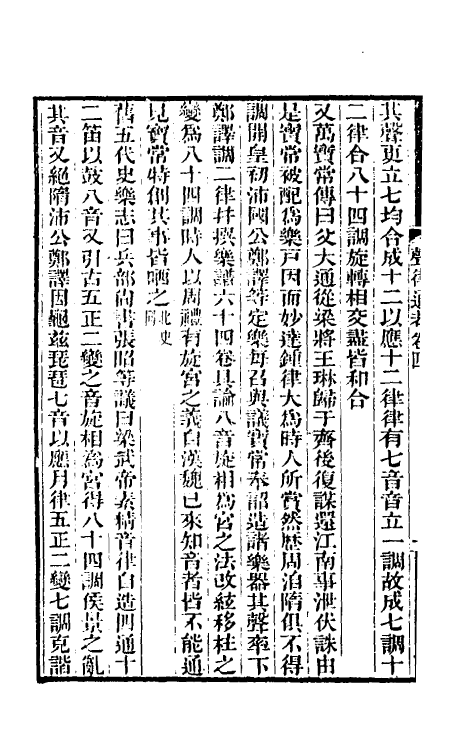 其聲更立七均合成十二以應十二律律有七音音立一調故成七調十
二律合八十四調旋轉相交盡皆和合
又萬寶常傳曰父大通從梁將王琳歸于齊後復謀還江南事泄伏誅由
是寶常被配爲樂戸因而妙達鍾律大爲時人所賞然歷周洎隋俱不得
調開皇初沛國公鄭譯等定樂每召與議寶常奉詔造諸樂器其聲率下
鄭譯調二律并撰樂譜六十四卷具論八音旋相爲宮之法改絃移柱之
變爲八十四調時人以周禮有旋宮之義自漢魏已來知音者皆不能通
見寶常特創其事皆哂之北史隋
舊五代史樂志曰兵部尚書張昭等議曰梁武帝素精音律自造四通十
二笛以鼓八音又引古五正二變之音旋相爲宮得八十四調侯景之亂
其音又絕隋沛公鄭譯因龜茲琵琶七音以應月律五正二變七調克諧
聲律通考卷四